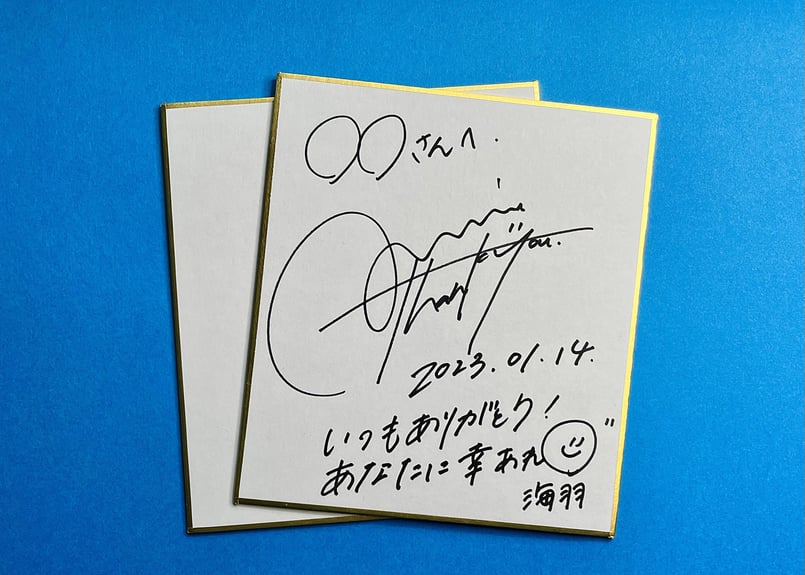 ○○さんへ.
Thank You.
2023.01.14.
いつもありがとう!
あなたに幸あれ
海羽